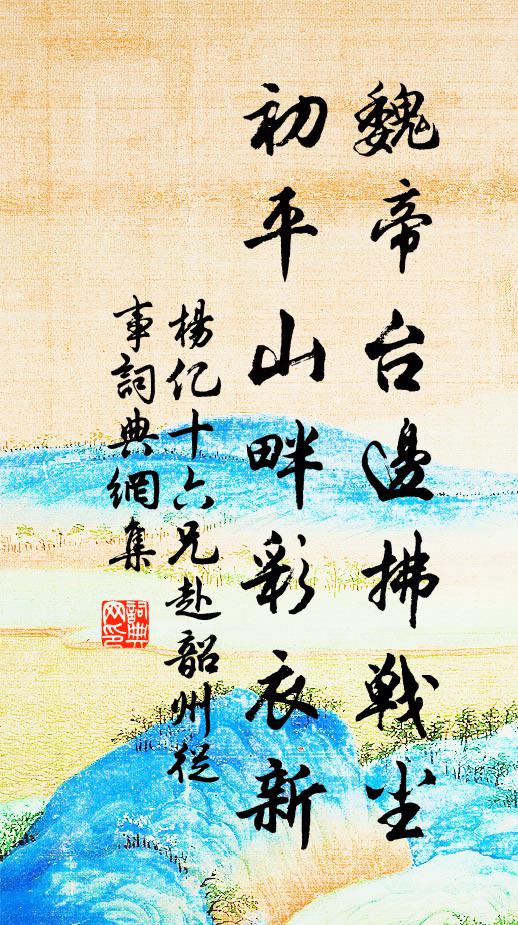 魏帝台邊拂戰尘
初平山畔彩衣新
楊亿十六兄赴韶州從
事詞典網集
詞典
网印